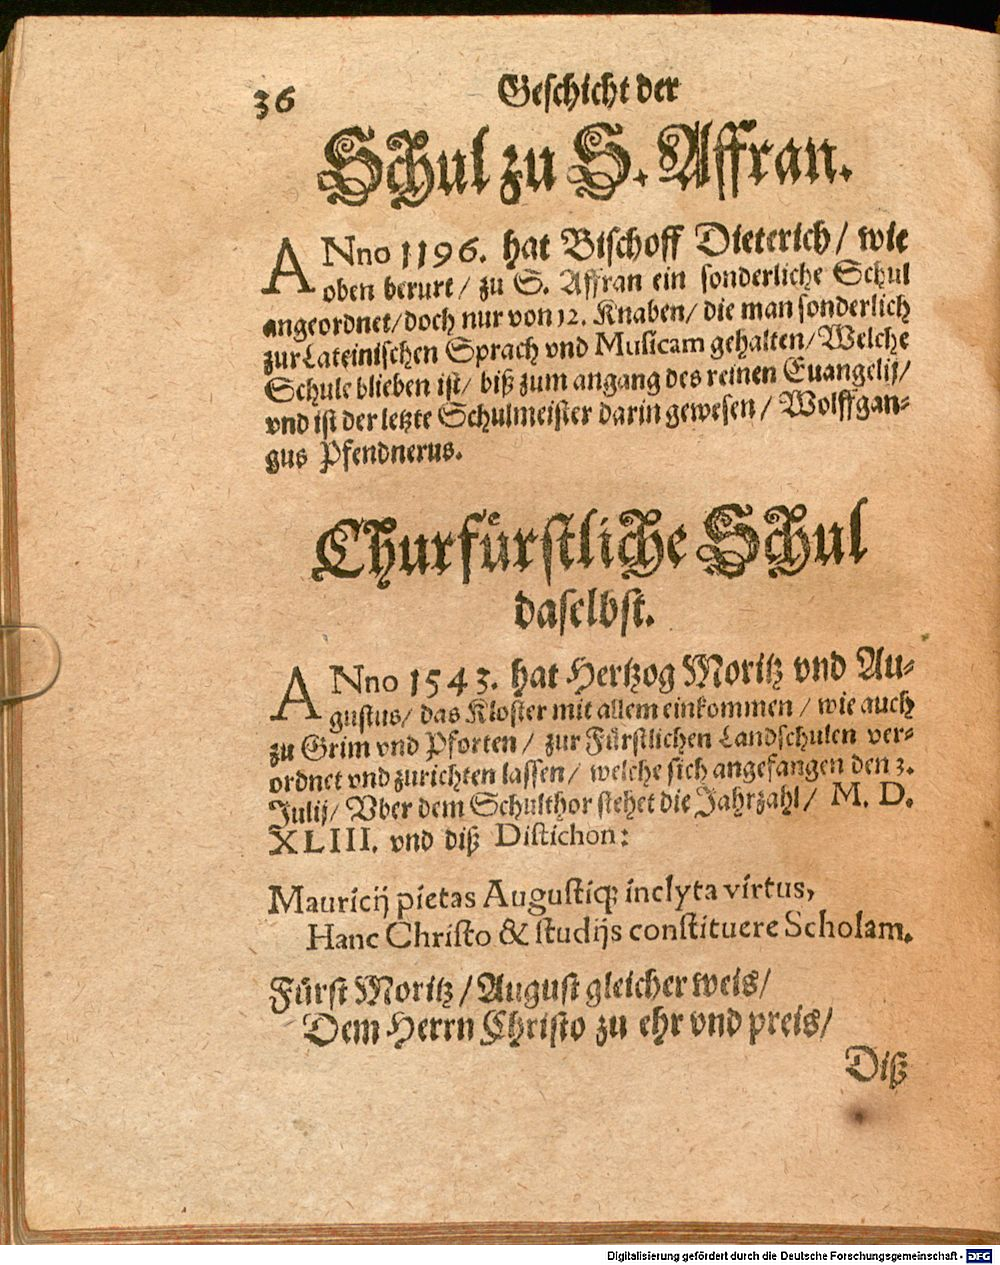 36
Geschicht der
Schul zu S. Affran.
ANno 1196. hat Bischoff Dieterich/ wie
oben berurt/ zu S. Affran ein sonderliche Schul
angeordnet/ doch nur von 12. Knaben/ die man sonderlich
zur Lateinischen Sprach vnd Musicam gehalten/ Welche
Schule blieben ist/ biß zum angang des reinen Euangelij/
vnd ist der letzte Schulmeister darin gewesen/ Wolffgan-
gus Pfendnerus.
Churfürstliche Schul
daselbst.
ANno 1543. hat Hertzog Moritz vnd Au-
gustus/ das Kloster mit allem einkommen/ wie auch
zu Grim vnd Pforten/ zur Fürstlichen Landschulen ver-
ordnet vnd zurichten lassen/ welche sich angefangen den 3.
Julij/ Vber dem Schulthor stehet die Jahrzahl/ M. D.
XLIII. vnd diß Distichon:
Mauricij pietas Augustiq; inclyta virtus,
Hanc Christo & studijs constituere Scholam.
Fürst Moritz/ August gleicher weis/
Dem Herrn Christo zu ehr vnd preis/
Diß
Digitalisierung gefördert durch die Deutsche Forschungsgemeinschaft - DFG